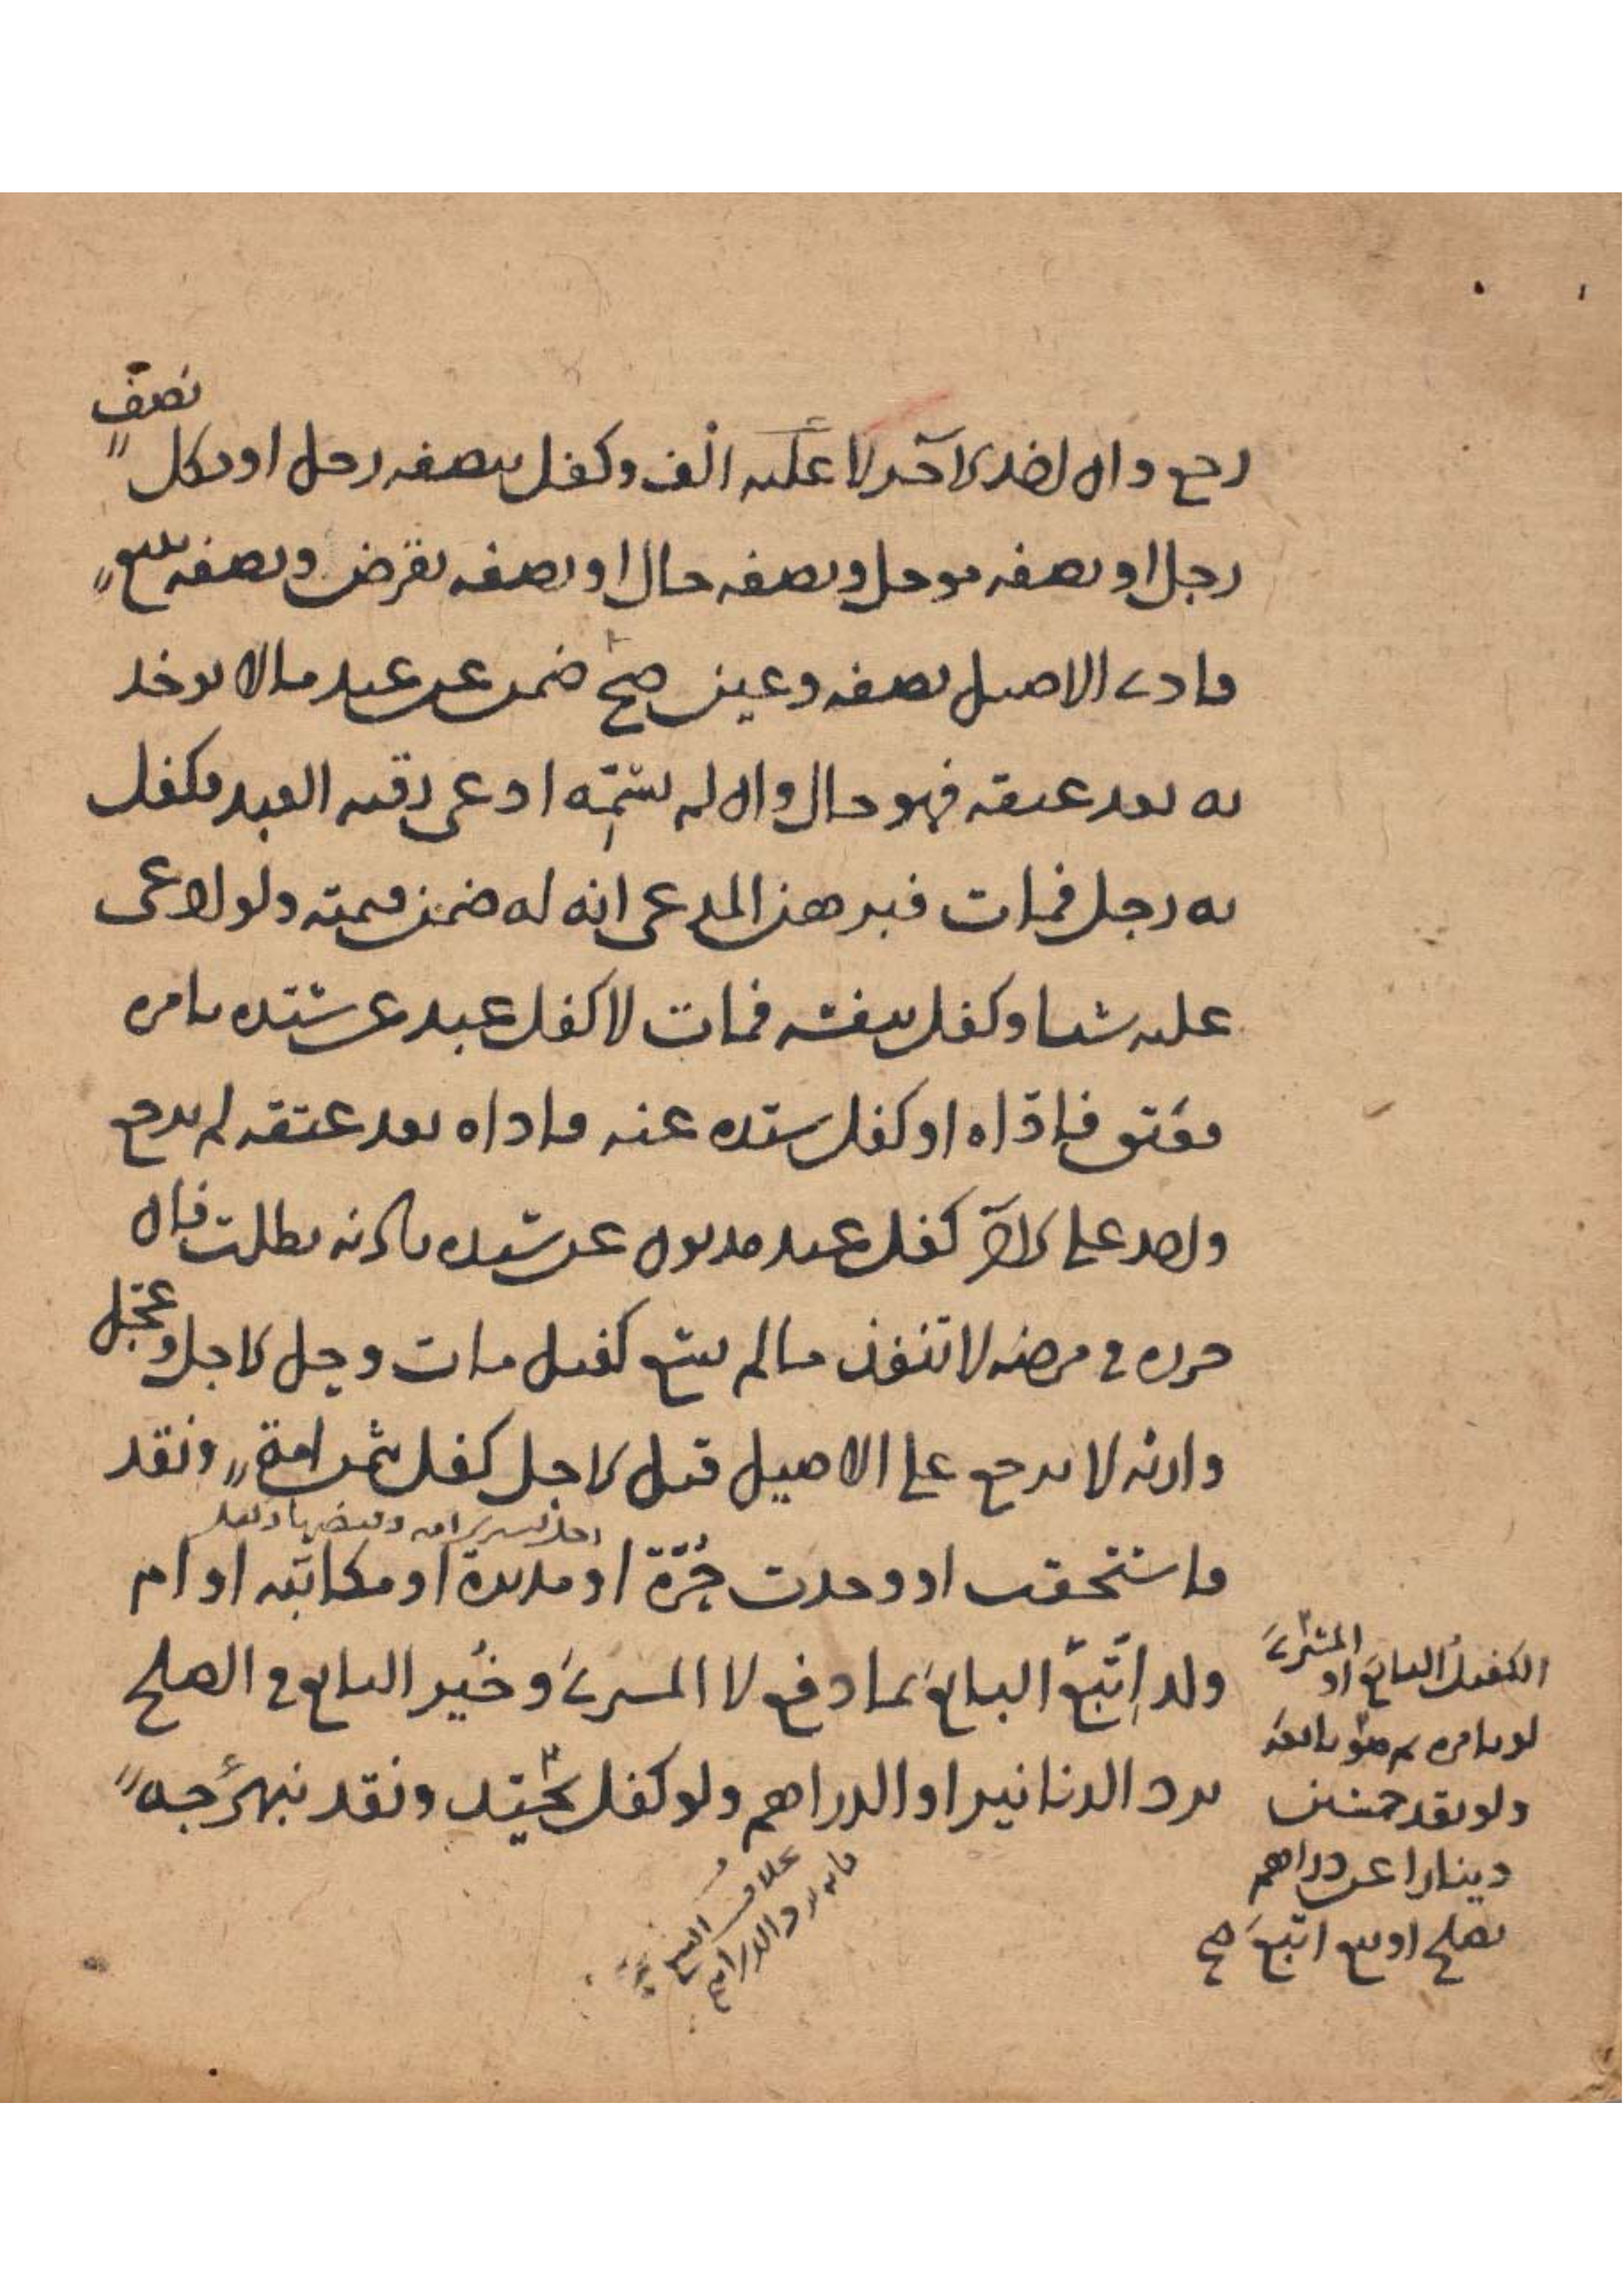 نصف
رجع وان اخر الآخر لا عليه الف وكفل بنصفه رجل او بكل
رجل او نصفه مؤجل ونصفه حال او نصفه بقرض ونصفه ببيع
فادى الاصيل نصفه وعين صح ضمن عن عبد مالا يوخذ
به بعد عتقه فهو حال وان لم يسمه ادعى رقبة العبد فكفل
به رجل فمات فبرهن المدعى انه له ضمن قيمته ولو ادعى
عليه شيا وكفل بنفسه فمات لا كفل عبد عن سيده بامره
فعتق فاداه او كفل سيده عنه فاداه بعد عتقه لم يرجع
واحد على الآخر كفل عبد مديون عن سيده باذنه بطلت فان
حرره في مرضه لا تنفذ ما لم يسع كفيل مات وحل الاجل وعجل
وارثه لا يرجع على الاصيل قبل الاجل كفل بثمن امة ونقد
فاستحقت او وجدت حرة او مدبرة او مكاتبة او ام
ولد اتبع البايع بما دفع لا المشترى وخير البايع في الصلح
برد الدنانير او الدراهم ولو كفل بجيد ونقد نبهرجه
الكفيل البايع او المشترى
لو بامره ثم هو بايعه
ولو نقد خمسين
دينارا عن دراهم
بصلح او بيع اتبع صح
بخلاف البيع
فانه يرد الدراهم